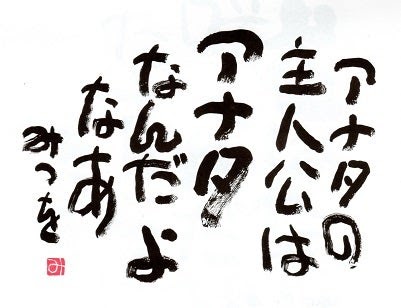 アナタの
主人公は
アナタ
なんだよ
なあ
みつを
み